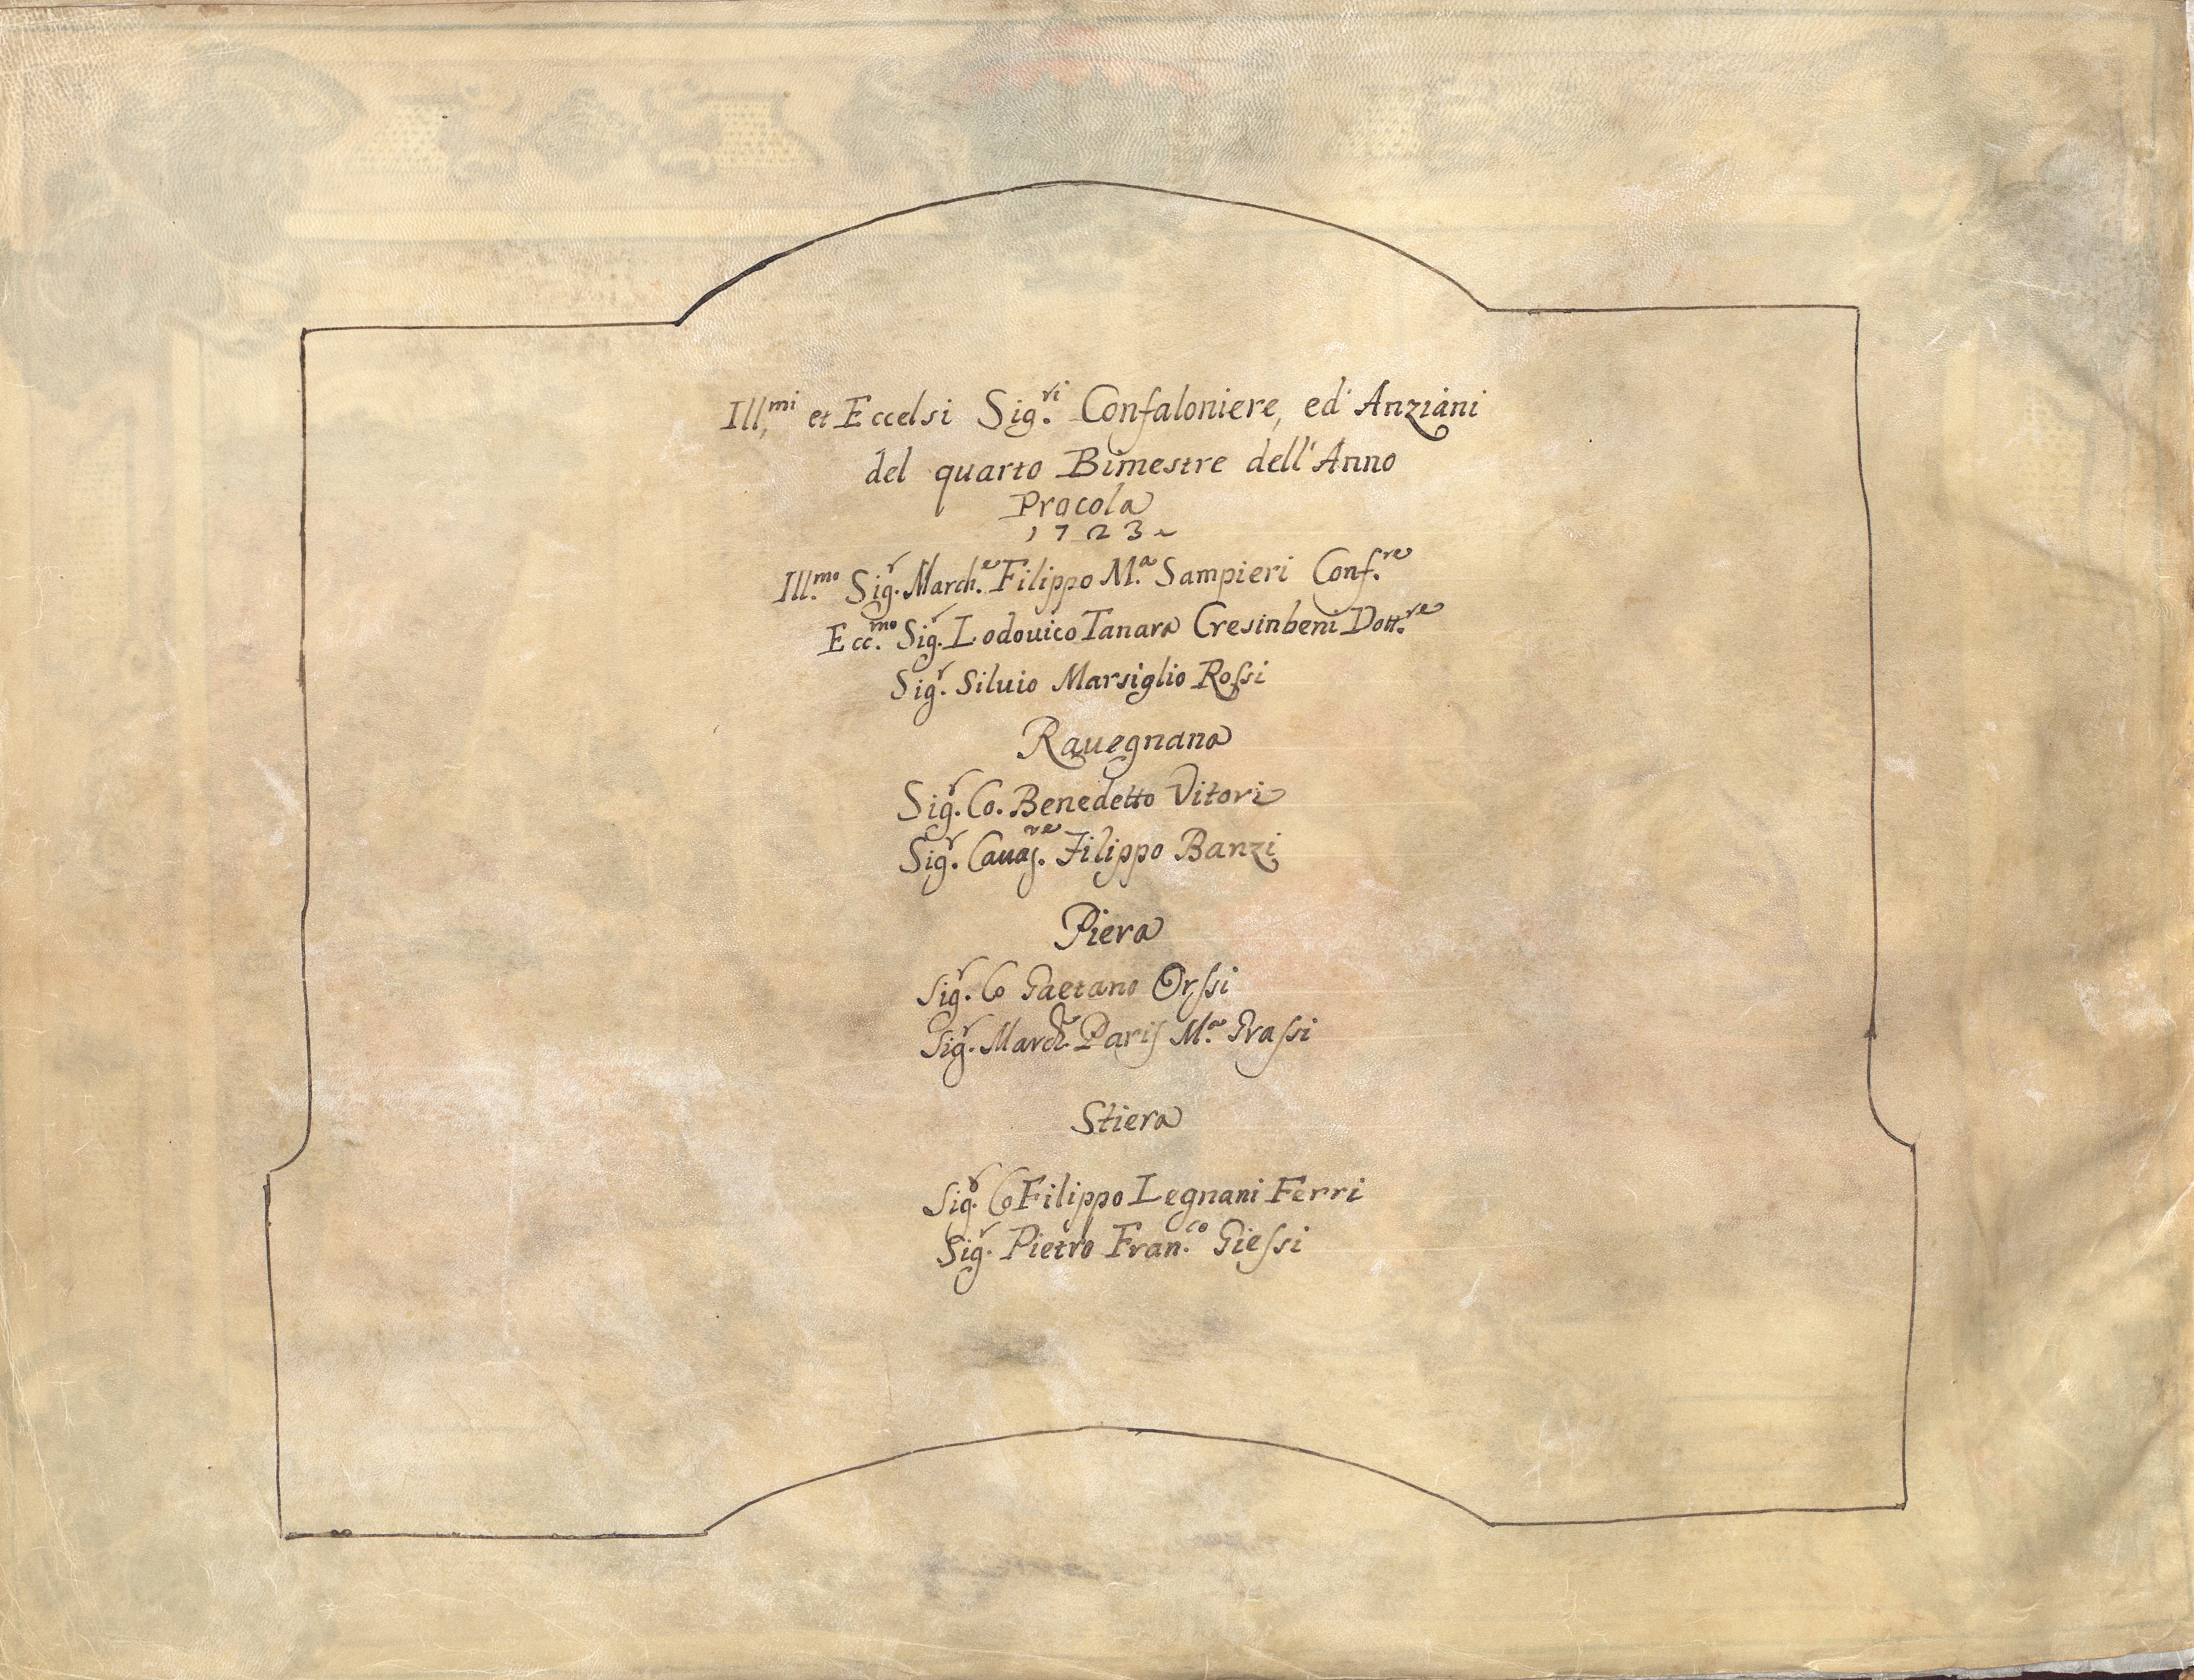 Ill.mi et Eccelsi Sig.ri Confaloniere, ed' Anziani
del quarto Bimestre dell'Anno
Procola
1723
Ill.mo Sig.r March.e Filippo M.a Sampieri Conf.re
Ecc.mo Sig.r Lodouico Tanara Cresinbeni Dott.re
Sig.r Siluio Marsiglio Roſsi
Rauegnana
Sig.r Co. Benedetto Vitori
Sig.r Cauag.re Filippo Banzi
Piera
Sig.r Co Gaetano Orſsi
Sig.r March.e Paris M.a Graſsi
Stiera
Sig.r Co Filippo Legnani Ferri
Sig.r Pietro Fran.co Gieſsi